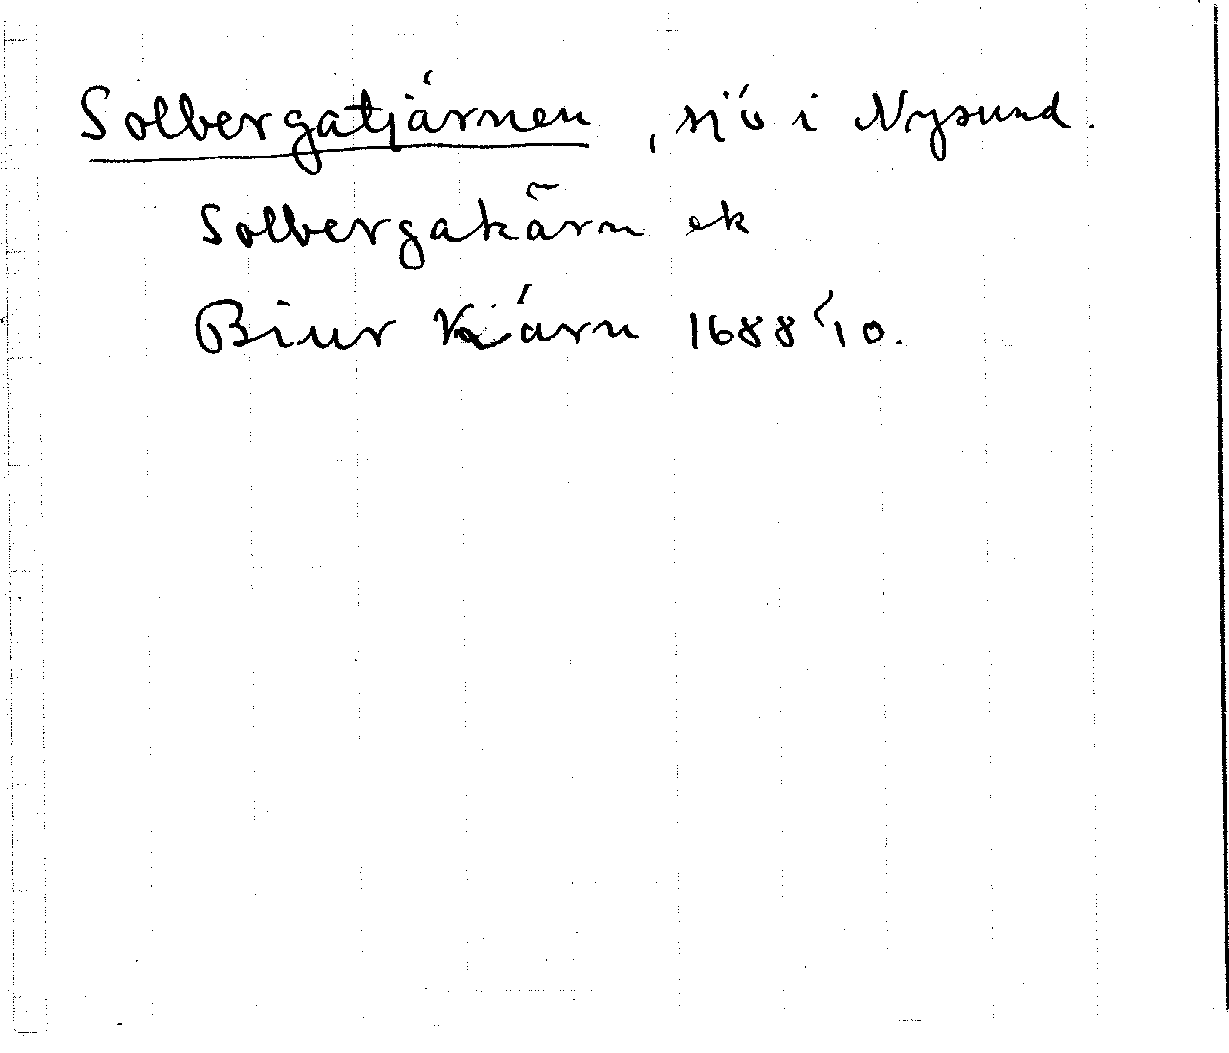 Solbergatjärnen, sjö i Nysund.
Solbergakärn ek
Biur Kiärn 1688 '10.